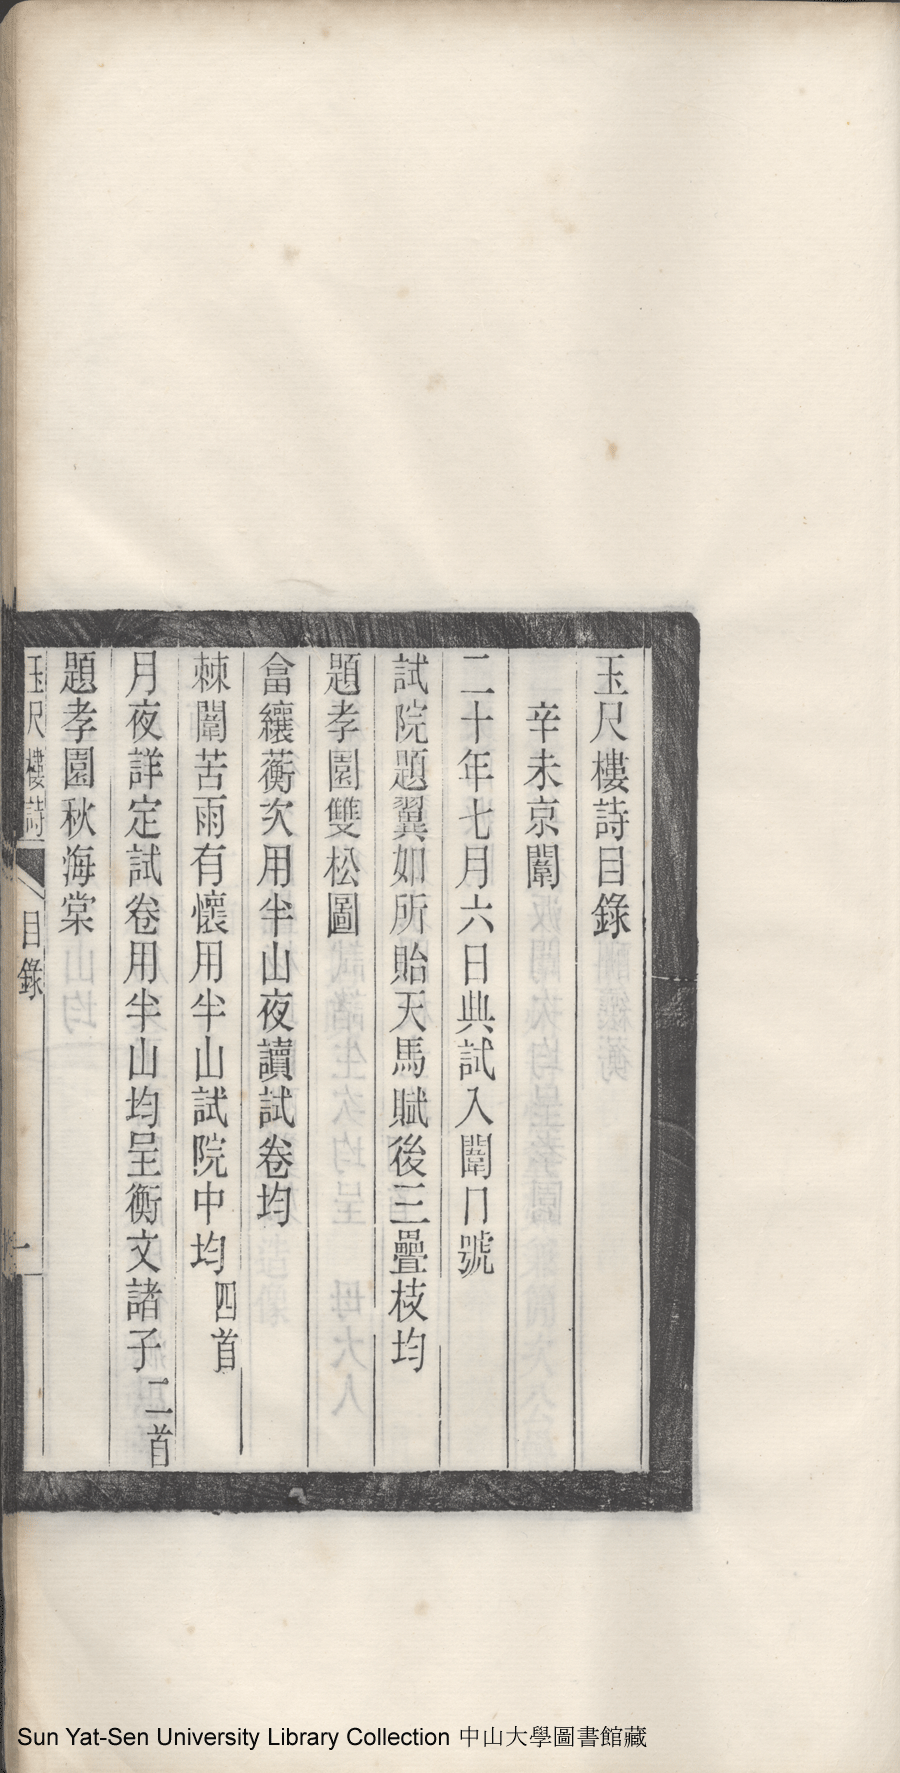 玉尺樓詩目錄
辛未京闈
二十年七月六日典試入闈門號
試院題翼如所貽天馬賦後三疊枝均
題孝園雙松圖
畣纕蘅次用半山夜讀試卷均
棘闈苦雨有懷用半山試院中均 四首
月夜詳定試卷用半山均呈衡文諸子 二首
題孝園秋海棠
玉尺樓詩 目錄 一
Sun Yat-Sen University Library Collection 中山大學圖書館藏